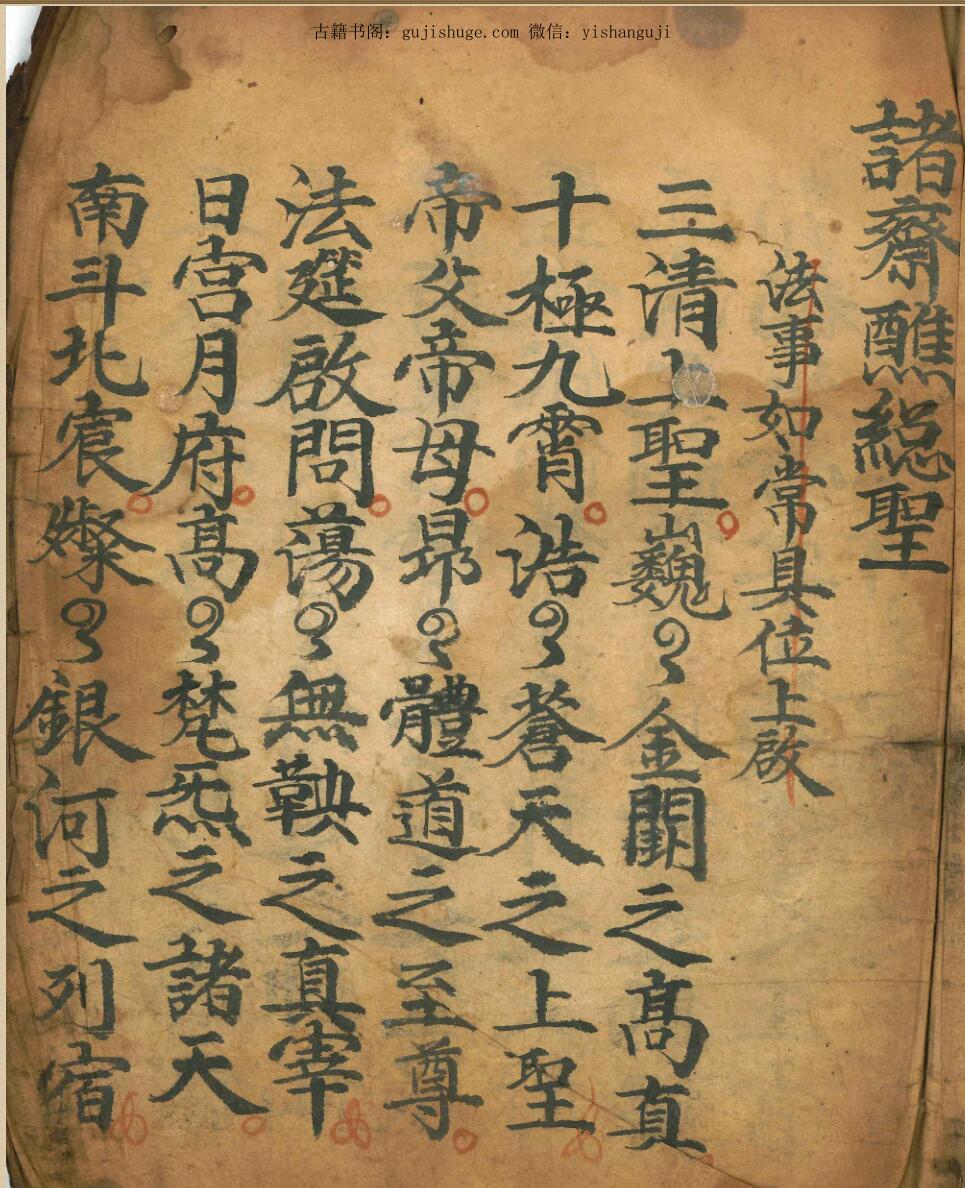 古籍书阁：gujishuge.com 微信：yishanguji
諸齋醮総聖
法事如常具位上啟
三清上聖巍〻金闕之高真
十極九霄浩〻蒼天之上聖
帝父帝母昂〻體道之至尊
法筵啟問蕩〻無鞅之真宰
日宫月府髙〻梵炁之諸天
南斗北宸燦〻銀河之列宿